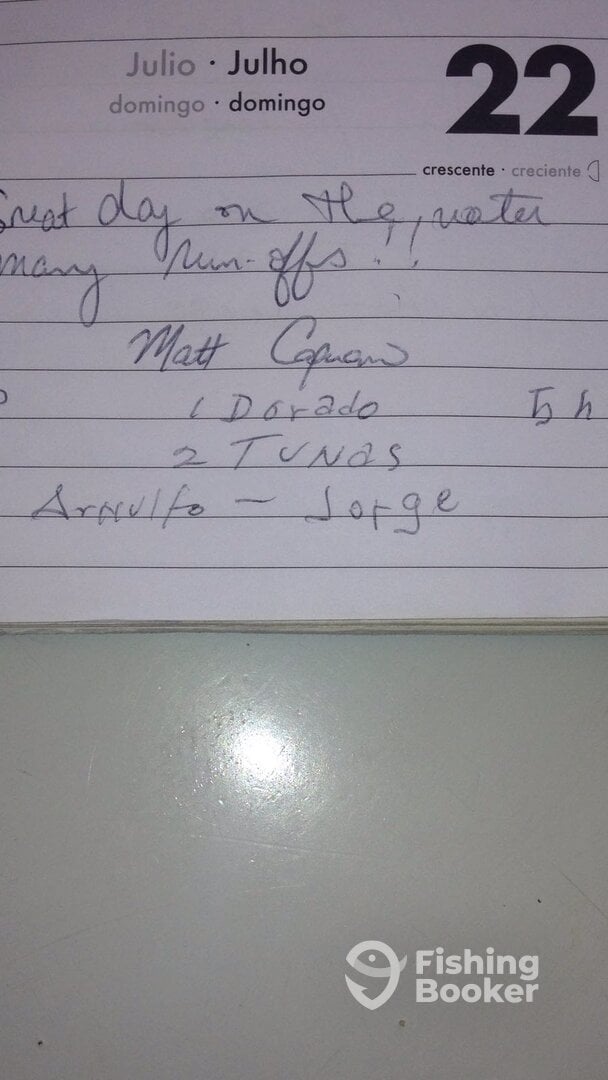 Julio · Julho
domingo · domingo
22
crescente · creciente
Great day on the water
many run-offs!!
Matt
1 Dorado 5 h
2 TUNAS
Arnulfo - Jorge
Fishing
Booker